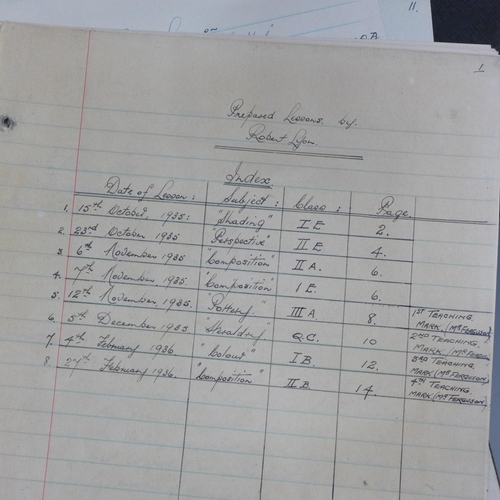 11.
1
Prepared Lessons, by.
Robert Lyon.
Index
Date of Lesson: Subject: Class: Page
1. 15th October 1935: "Shading" I E 2.
2. 23rd October 1935 "Perspective" II E 4.
3. 6th November 1935 "Composition" II A. 6.
4. 7th November 1935 "Composition" I E. 6.
5. 12th November 1935. "Pottery." III A 8. 1ST TEACHING MARK, (Mr FERGUSON)
6. 5th December 1935 "Heraldry" Q.C. 10 2ND TEACHING MARK, (Mr FERGUSON
7. 4th February 1936 "Colour" I B 12. 3RD TEACHING MARK (Mr FERGUSON)
8. 27th February 1936 "Composition" II B 14. 4TH TEACHING MARK (Mr FERGUSON)